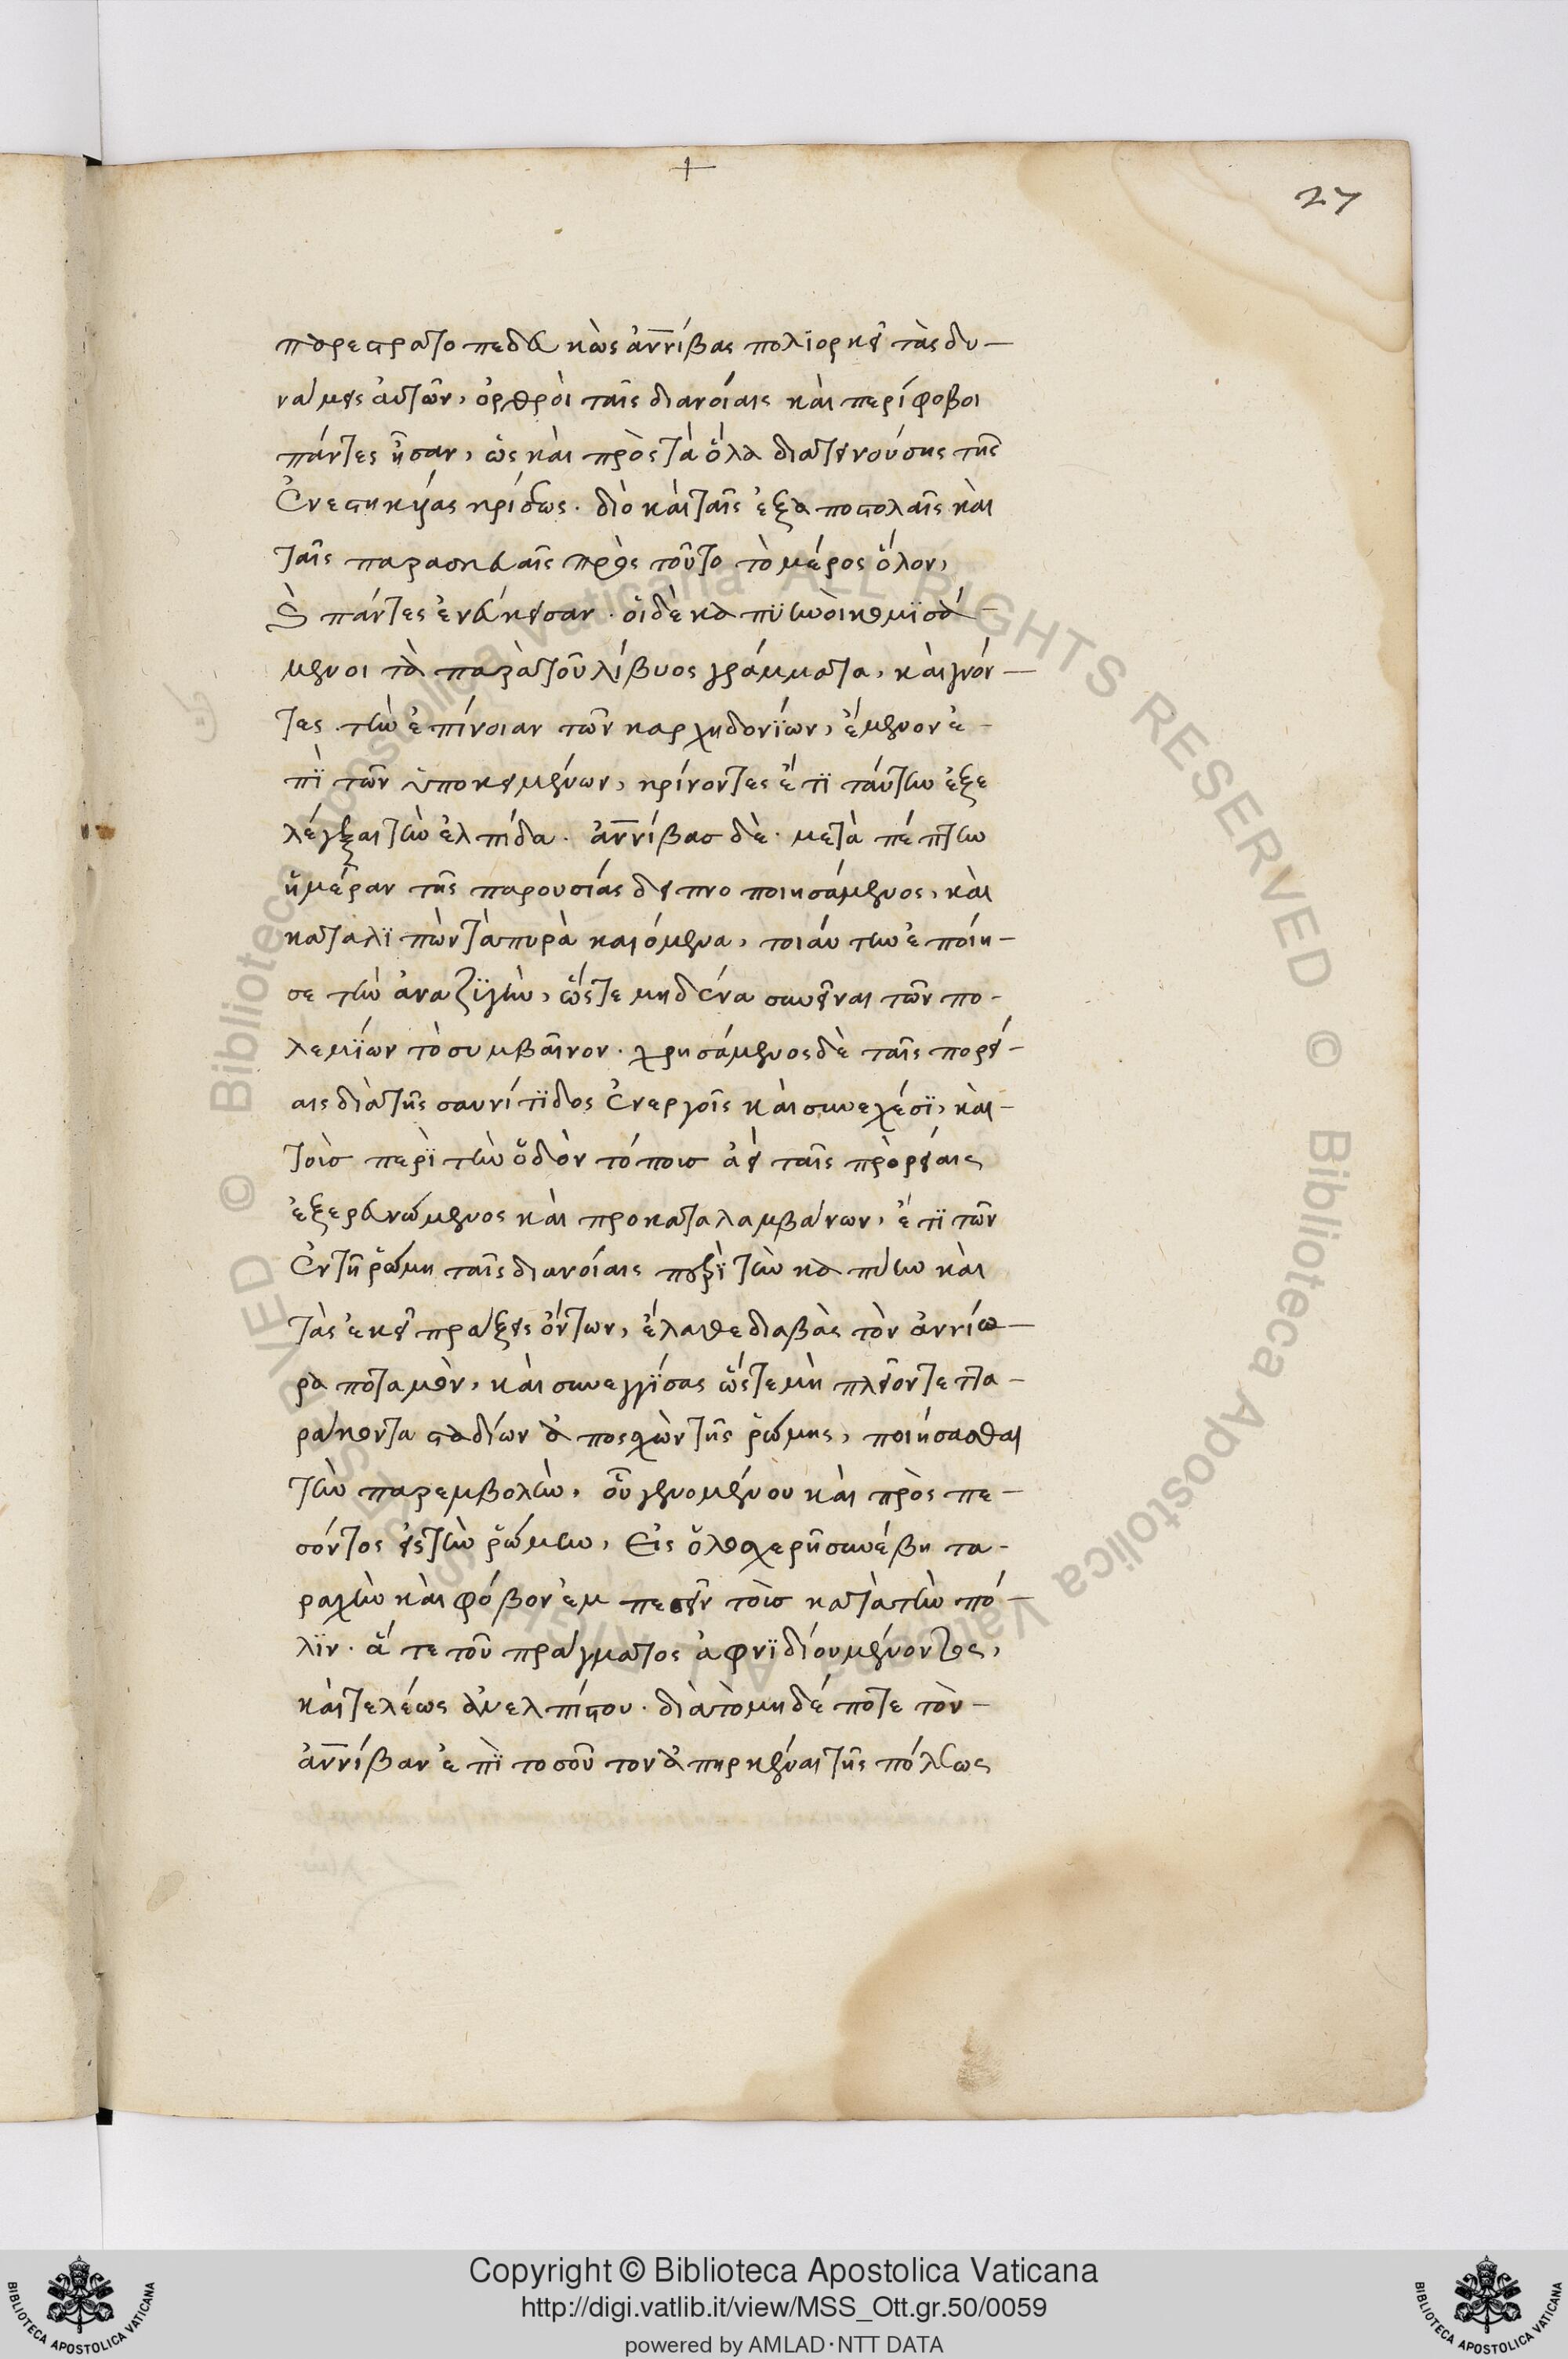 +
27
παρεστρατοπεδευκὼς ἀννίβας πολϊορκεῖ τὰς δυ-
νάμεις ἀυτῶν, ὀρθρὸι ταῖς διανοίαις κὰι περίφοβοι
πάντες ἦσαν, ὡς κὰι πρὸς τὰ ὅλα διατεινούσης τῆς
ἐνεστηκυίας κρίσεως. διὸ κὰι ταῖς ἐξαποστολαῖς κὰι
ταῖς παρασκευαῖς πρὸς τοῦτο τὸ μέρος ὅλον,
πάντες ἐνεύκεισαν. ὁι δὲ καπϋηνὸι κομϊσά-
μενοι τὰ παρὰ τοῦ λίβυος γράμματα, κὰι γνόν-
τες τὴν ἐπίνοιαν τῶν καρχηδονΐων, ἔμενον ἐ-
πῒ τῶν ὑποκειμένων, κρίνοντες ἔτϊ τάυτην ἐξε
λέγξαι τὴν ἐλπίδα. ἀννίβασ δὲ μετὰ πέμπτην
ἡμέραν τῆς παρουσίας δειπνοποιησάμενος, κὰι
καταλϊπὼν τὰ πυρὰ καιόμενα, τοιάυτην ἐποίη-
σε τὴν ἀναζϋγὴν, ὥστε μηδένα συνεῖναι τῶν πο-
λεμΐων τὸ συμβαῖνον. χρησάμενος δὲ ταῖς πορεί-
αις διὰ τῆς σαυνίτϊδος ἐνεργοῖς κὰι συνεχέσϊ, κὰι-
τοὶσ περῒ τὴν ὁδὸν τόποισ ἀεὶ ταῖς προρείαις
ἐξερευνώμενος κὰι προκαταλαμβάνων, ἔτϊ τῶν
ἐν τῇ ῥώμῃ ταῖς διανοίαις περῒ τὴν καπύην κὰι
τὰς ἐκεῖ πράξεις ὄντων, ἔλαθε διαβὰς τὸν ἀννίω-
ρα ποταμὸν, κὰι συνεγγΐσας ὥστε μὴ πλεῖον τετ̄τα-
ράκοντα σταδίων ἀποσχὼν τῆς ῥώμης, ποιήσασθαι
τὴν παρεμβολὴν, οὗ γενομένου κὰι πρὸς πε-
σόντος εἰς τὴν ῥώμην, εἰς ὁλοσχερῆ συνέβη τα-
ραχὴν κὰι φόβον ἐμπεσεῖν τοὶσ κατὰ τὴν πό-
λϊν. ἅτε τοῦ πράγματος ἀφνϊδίου μένοντος,
κὰι τελέως ἀνελπίστου. διὰ τὸ μηδέποτε τὸν-
ἀννίβαν ἐπῒ τοσοῦτον ἀπηρκέναι τῆς πόλεως
Copyright © Biblioteca Apostolica Vaticana
http://digi.vatlib.it/view/MSS_Ott.gr.50/0059
powered by AMLAD·NTT DATA